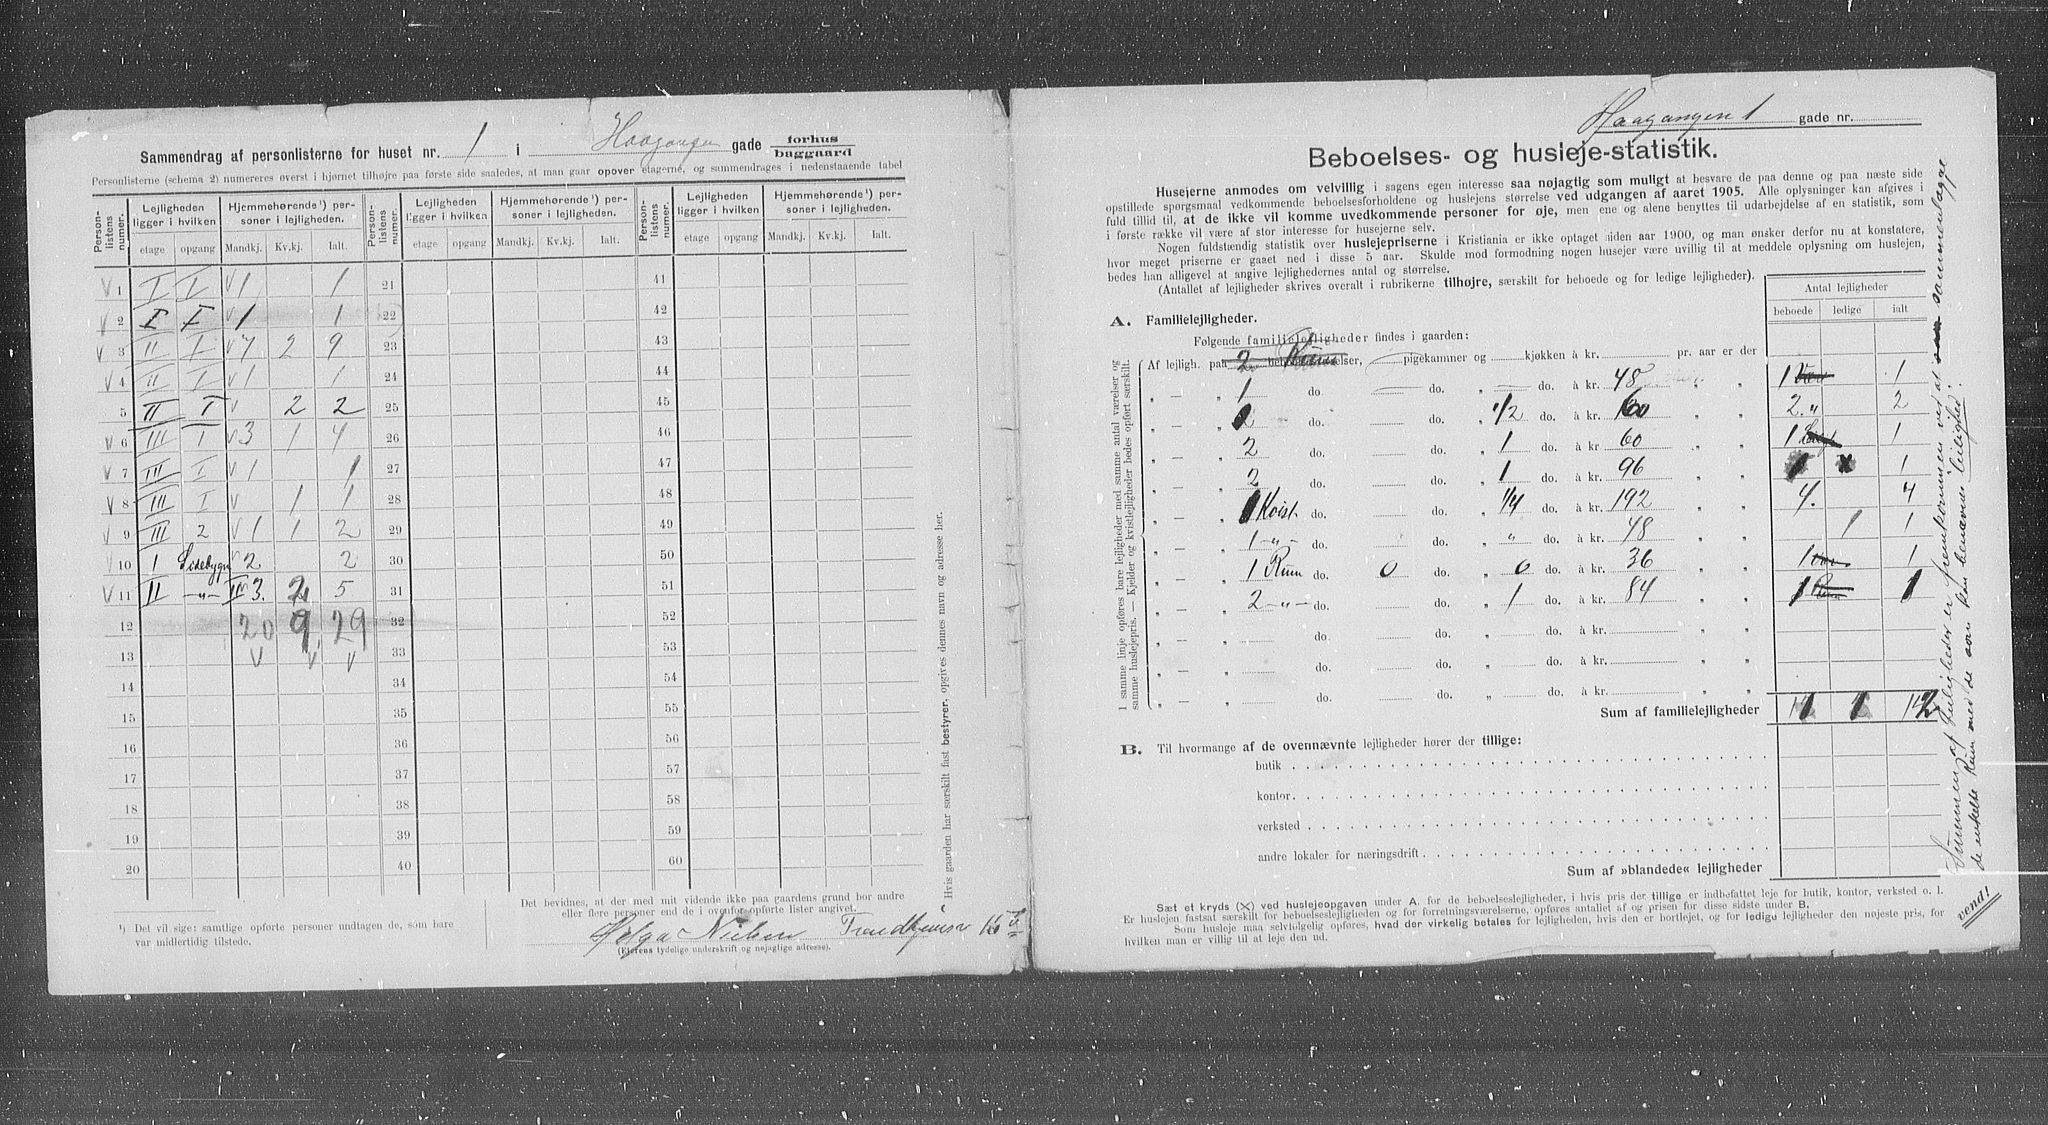 Sammendrag af personlisterne for huset nr. 1 i Haagangen gade forhus
baggaard
Personlisterne (schema 2) numereres øverst i hjørnet tilhøjre paa første side saaledes, at man gaar opover etagerne, og sammendrages i nedenstaaende tabel
Person-listens numer. Lejligheden ligger i hvilken Hjemmehørende¹) personer i lejligheden. Person-listens numer. Lejligheden ligger i hvilken Hjemmehørende¹) personer i lejligheden. Person-listens numer. Lejligheden ligger i hvilken Hjemmehørende¹) personer i lejligheden.
etage opgang Mandkj. Kv.kj. Ialt. etage opgang Mandkj. Kv.kj. Ialt. etage opgang Mandkj. Kv.kj. Ialt.
V 1 I I V 1 1 21 41
V 2 I I V 1 1 22 42
V 3 II I V 7 2 9 23 43
V 4 II I V 1 1 24 44
5 II I V 2 2 25 45
V 6 III I V 3 1 4 26 46
V 7 III I V 1 1 27 47
V 8 III I V 1 1 28 48
V 9 III 2 V 1 1 2 29 49
V 10 1 Sidebygn V 2 2 30 50
V 11 II -"- III 3. 2 5 31 51
12 20 9 29 32 52
13 V V V 33 53
14 34 54
15 35 55
16 36 56
17 37 57
18 38 58
19 39 59
20 40 60
Hvis gaarden har særskilt fast bestyrer, opgives dennes navn og adresse her.
¹) Det vil sige: samtlige opførte personer undtagen de, som bare
var midlertidig tilstede.
Det bevidnes, at der med mit vidende ikke paa gaardens grund bor andre
eller flere personer end de i ovenfor opførte lister angivet.
Helga Nielsen Trondhjemsv 15 b
(Ejerens tydelige underskrift og nøjagtige adresse).
Haagangen 1 gade nr.
Beboelses- og husleje-statistik.
Husejerne anmodes om velvillig i sagens egen interesse saa nøjagtig som muligt at besvare de paa denne og paa næste side
opstillede spørgsmaal vedkommende beboelsesforholdene og huslejens størrelse ved udgangen af aaret 1905. Alle oplysninger kan afgives i
fuld tillid til, at de ikke vil komme uvedkommende personer for øje, men ene og alene benyttes til udarbejdelse af en statistik, som
i første række vil være af stor interesse for husejerne selv.
Nogen fuldstændig statistik over huslejepriserne i Kristiania er ikke optaget siden aar 1900, og man ønsker derfor nu at konstatere,
hvor meget priserne er gaaet ned i disse 5 aar. Skulde mod formodning nogen husejer være uvillig til at meddele oplysning om huslejen,
bedes han alligevel at angive lejlighedernes antal og størrelse.
(Antallet af lejligheder skrives overalt i rubrikerne tilhøjre, særskilt for beboede og for ledige lejligheder).
Antal lejligheder
beboede ledige ialt
A. Familielejligheder.
Følgende familielejligheder findes i gaarden:
I samme linje opføres bare lejligheder med samme antal værelser og
samme huslejepris. — Kjelder og kvistlejligheder bedes opført særskilt.
Af lejligh. paa 2 Rum beboelsesværelser, pigekammer og kjøkken à kr. pr. aar er der
" — " 1 do. do. " do. à kr. 48 " " 1 1
" — " 2 do. do. " 1/2 do. à kr. 160 " " 2 " 2
" — " 2 do. do. " 1 do. à kr. 60 " " 1 1
" — " 2 do. do. " 1 do. à kr. 96 " " 1 1
" — " 1 Kvist do. do. " 1/4 do. à kr. 192 " " 4. 4
" — " 1 -"- do. do. " " do. à kr. 48 " " 1 1
" — " 1 Rum do. 0 do. " 0 do. à kr. 36 " " 1 1
" — " 2 -"- do. do. " 1 do. à kr. 84 " " 1 1
" — " do. do. " do. à kr. " "
" — " do. do. " do. à kr. " "
" — " do. do. " do. à kr. " "
Sum af familielejligheder 11 1 12
B. Til hvormange af de ovennævnte lejligheder hører der tillige:
butik
kontor
verksted
andre lokaler for næringsdrift
Sum af »blandede« lejligheder
Sæt et kryds (X) ved huslejeopgaven under A. for de beboelseslejligheder, i hvis pris der tillige er indbefattet leje for butik, kontor, verksted o. l.
Er huslejen fastsat særskilt for beboelseslejligheder og for forretningsværelserne, opføres antallet af og prisen for disse sidste under B.
Som husleje maa selvfølgelig opføres, hvad der virkelig betales for lejligheden, hvis den er bortlejet, og for ledige lejligheder den nøjeste pris, for
hvilken man er villig til at leje den ud.
Summen af Leiligheder er fremkommen ved at sammenlægge
de enkelte Rum med de som kan benævnes leilighed.
vend!